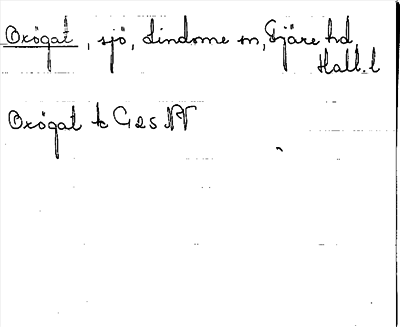 Oxögat, sjö, Lindome sn, Fjäre hd
Hall. l
Oxögat tc G 2 S NV